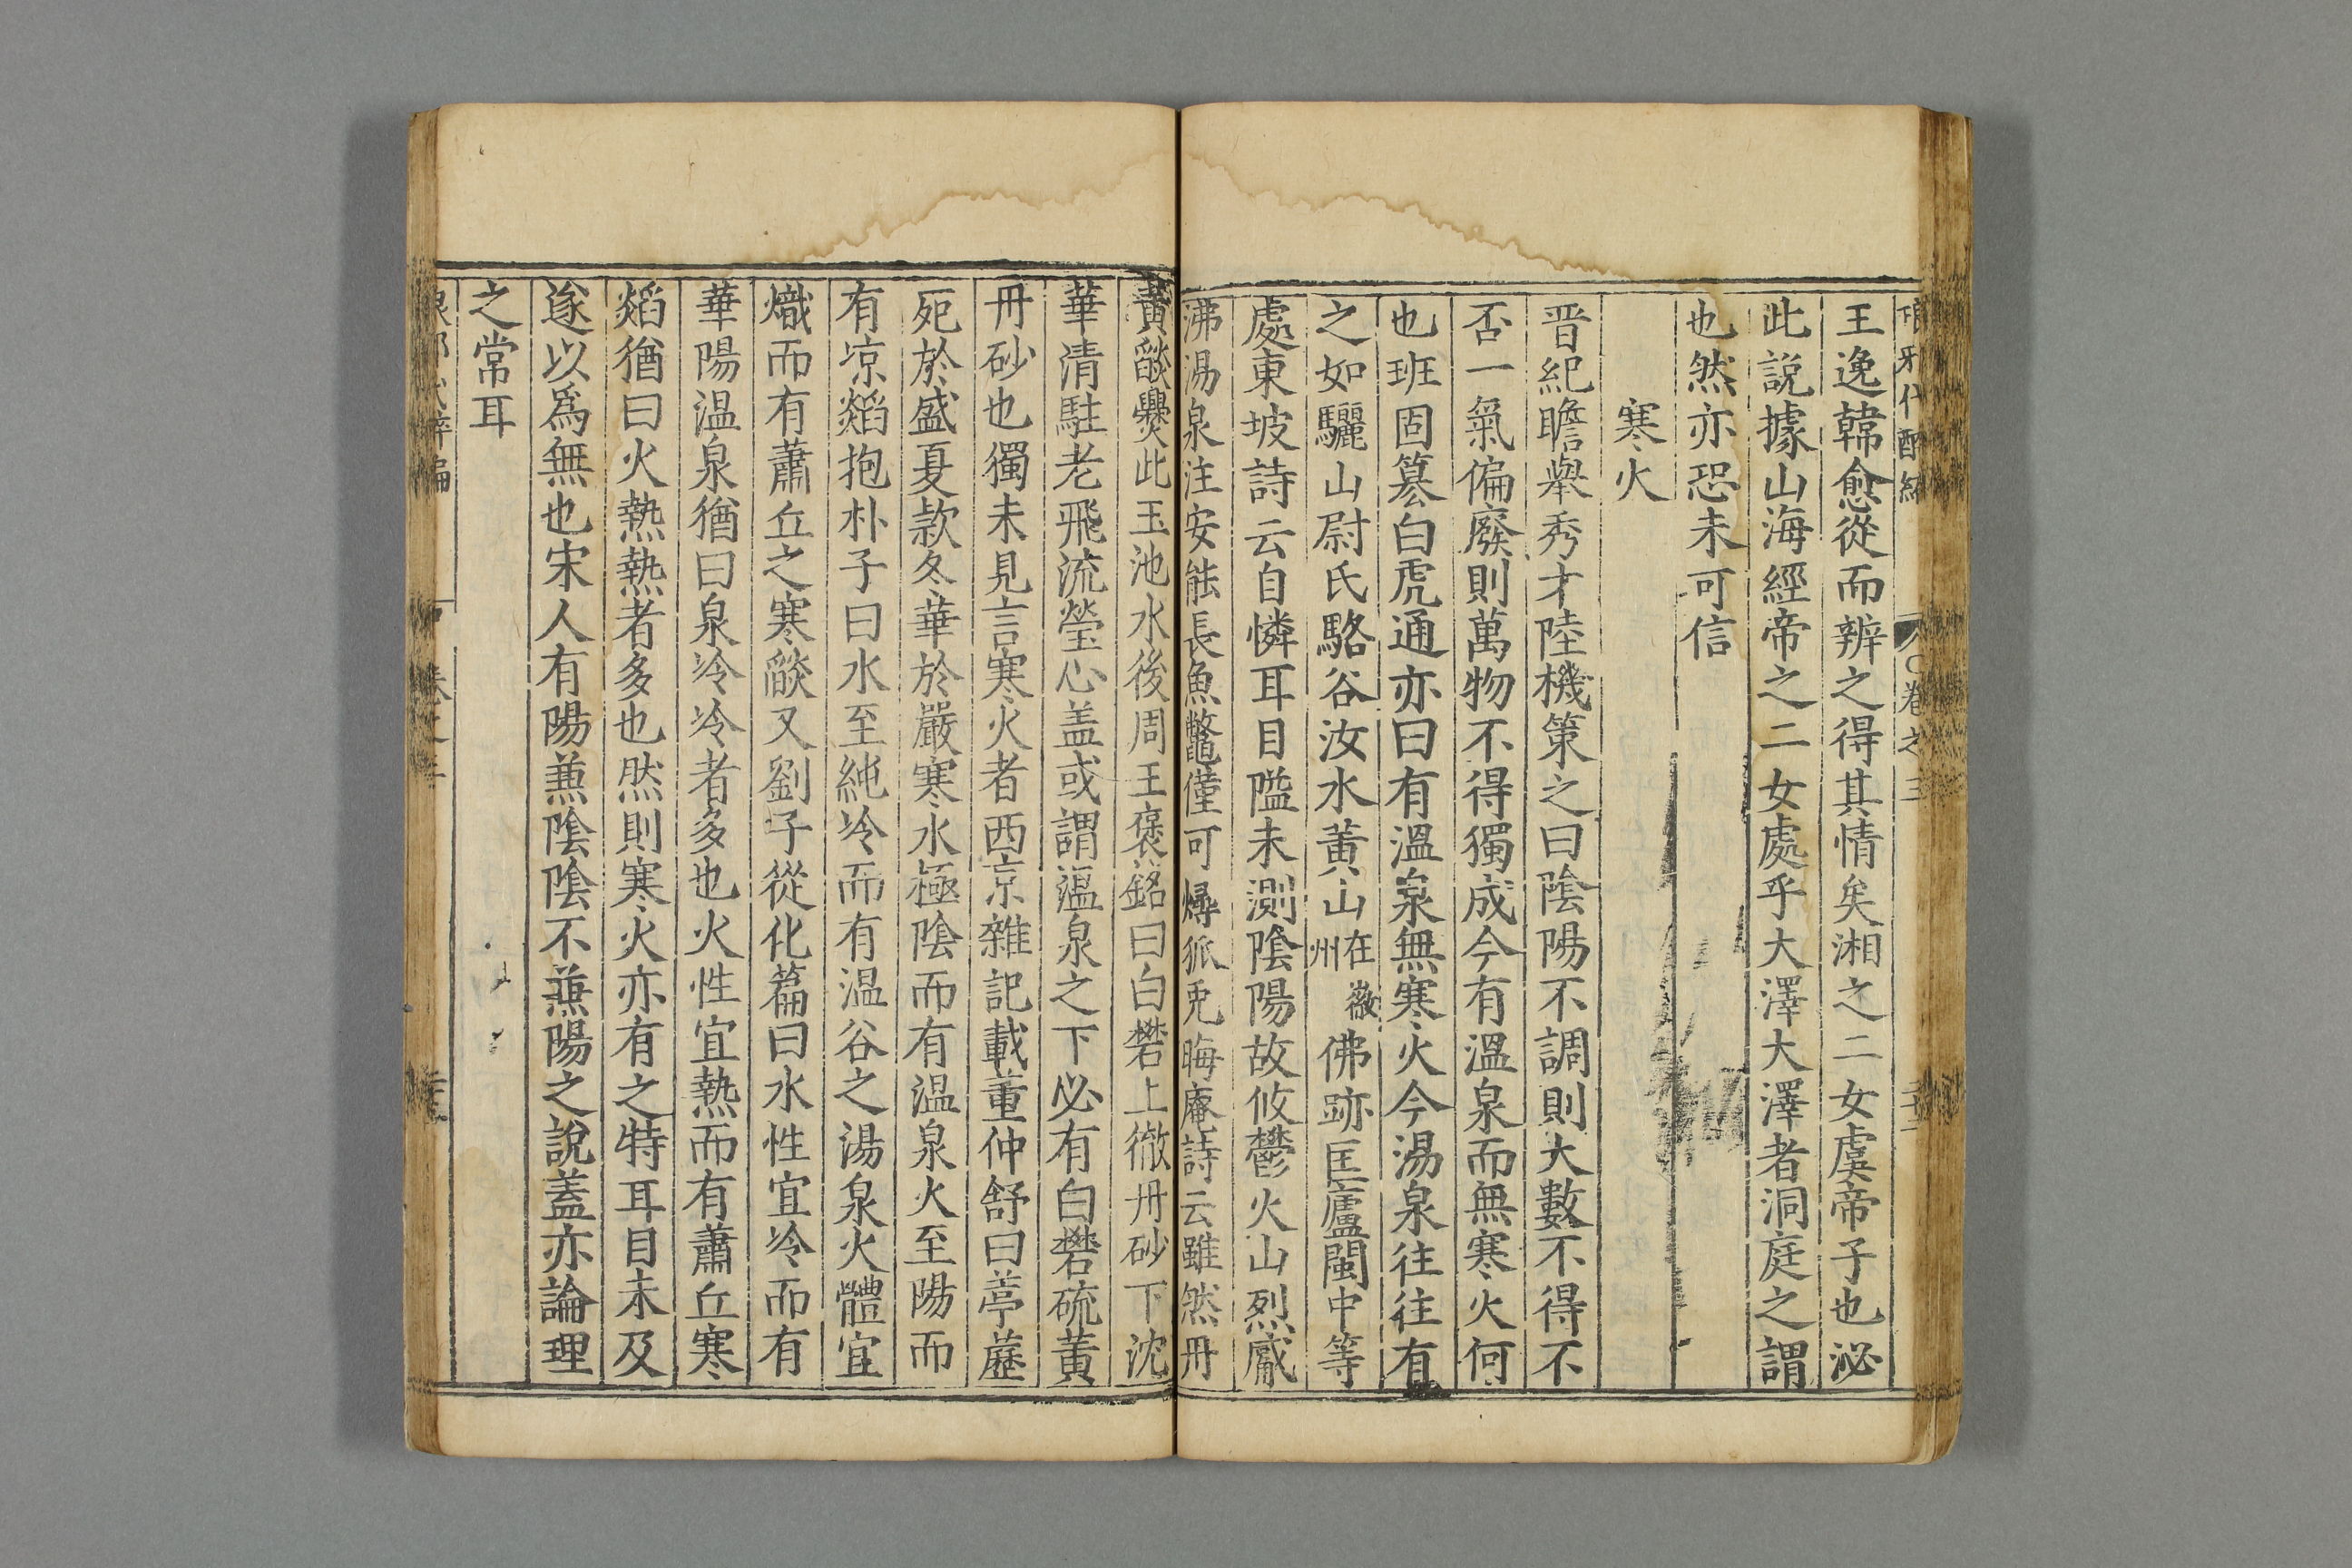 王逸韓愈從而辨之得其情矣湘之二女虞帝子也泌
此説據山海經帝之二女處乎大澤大澤者洞庭之謂
也然亦恐未可信
寒火
晋紀瞻舉秀才陸機策之曰隂陽不調則大數不得不
否一氣偏廢則萬物不得獨成今有溫泉而無寒火何
也班固纂白虎通亦曰有溫泉無寒火今湯泉往往有
之如驪山尉氏駱谷汝水黄山在徽州佛跡匡廬閩中等
處東坡詩云自憐耳目隘未測隂陽故攸鬱火山烈觱
沸湯泉注安能長魚鼈僅可燖狐兎晦庵詩云雖然丹
黄燄爨此玉池水後周王褒銘曰白礬上徹丹砂下沈
華清駐老飛流瑩心盖或謂温泉之下必有白礬硫黄
丹砂也獨未見言寒火者西京雜記載董仲舒曰葶藶
死於盛夏款冬華於嚴寒水極隂而有温泉火至陽而
有凉燄抱朴子曰水至純冷而有温谷之湯泉火體宜
熾而有蕭丘之寒燄又劉子從化篇曰水性宜冷而有
華陽温泉猶曰泉冷冷者多也火性宜熱而有蕭丘寒
燄猶曰火熱熱者多也然則寒火亦有之特耳目未及
遂以爲無也宋人有陽兼隂隂不兼陽之說蓋亦論理
之常耳